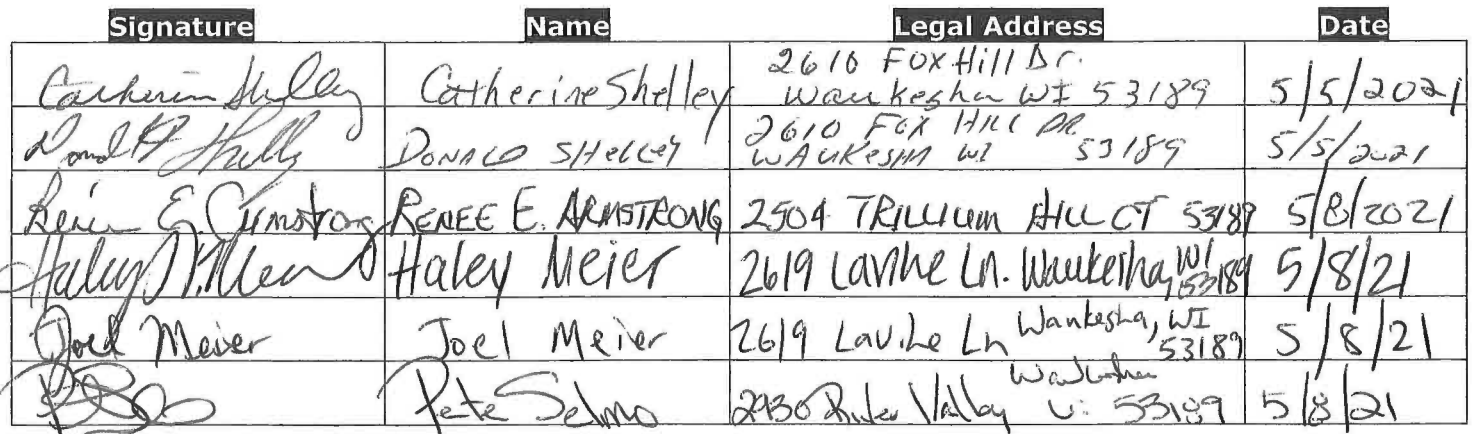 Signature Name Legal Address Date
2610 Fox Hill Dr.
Catherine Shelley Catherine Shelley Waukesha WI 53189 5/5/2021
2610 Fox Hill DR
Donald Shelley DONALD SHELLEY WAUKESHA WI 53189 5/5/2021
Renee E. Armstrong RENEE E. ARMSTRONG 2504 TRILLIUM HILL CT 53189 5/8/2021
Haley Meier Haley Meier 2619 Lavine Ln. Waukesha, WI 53189 5/8/21
Joel Meier Joel Meier 2619 Lavine Ln Waukesha, WI 53189 5/8/21
Waukesha
Pete Selmo 2930 River Valley 53189 5/8/21